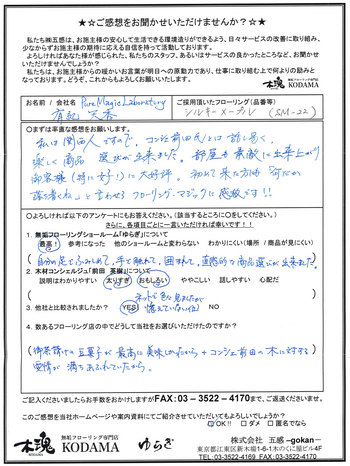 ★☆ご感想をお聞かせいただけませんか?☆★
私たち㈱五感は、お施主様の安心して生活できる環境造りができるよう、日々サービスの改善に取り組み、
少なからずお施主様の期待に応える自信を持って活動しております。
よろしければあなた様が感じられた、私たちのスタッフ、あるいはサービスの良かったところなど、お聞かせ
いただけませんでしょうか?
私たちは、お施主様からの暖かいお言葉が明日への原動力であり、仕事に取り組む上で何よりの励みと
なっております。どうぞ、これからもよろしくお願いいたします。
木魂 KODAMA
お名前 / 会社名 Pure Magic Laboratory
ご採用頂いたフローリング(品番等)
シルキーメープル (SM-22)
○まずは率直な感想をお願いします。
私は関西人ですので、コンシェ前田氏とは話し易く、
楽しく商品選択が出来ました。部屋も素敵に出来上がり
御客様(特に好!)に大好評。初めて来た方は「何だか
落ち着くね」と言わせるフローリング・マジックに感激です!!
○よろしければ以下のアンケートにもお答えください。(該当するところに○をしてください。)
さらに、各項目ごとに一言いただければ幸いです!!
1. 無垢フローリングショールーム「ゆらぎ」について
最高! 参考になった 他のショールームと変わらない わかりにくい(場所 / 商品が見にくい)
(自分の足でふみしめて、手で触れて、囲まれて、直感的な商品選びが出来ました。)
2. 木材コンシェルジュ「前田 英樹」について
説明はわかりやすい 太りすぎ おもしろい ややこしい 話しやすい 心配だ
3. 他社と比較されましたか? YES NO
ネットで色々見ましたが
憶えていない位
4. 数あるフローリング店の中でどうして当社をお選びいただけたのですか?
(御茶請けの豆菓子が最高に美味しかったから + コンシェ前田の木に対する
愛情が満ちあふれていたから。)
ご記入くださいましたらお手数をおかけしますがFAX:03-3522-4170まで、ご返送くださいませ。
このご感想を当社ホームページや案内資料にてご紹介させていただいてもよろしいでしょうか?
OK!! □ダメ □匿名なら
木魂 無垢フローリング専門店 KODAMA ゆらぎ
株式会社 五感 -gokan-
東京都江東区新木場1-6-1木のくに屋ビル4F
TEL:03-3522-4169 FAX:03-3522-4170